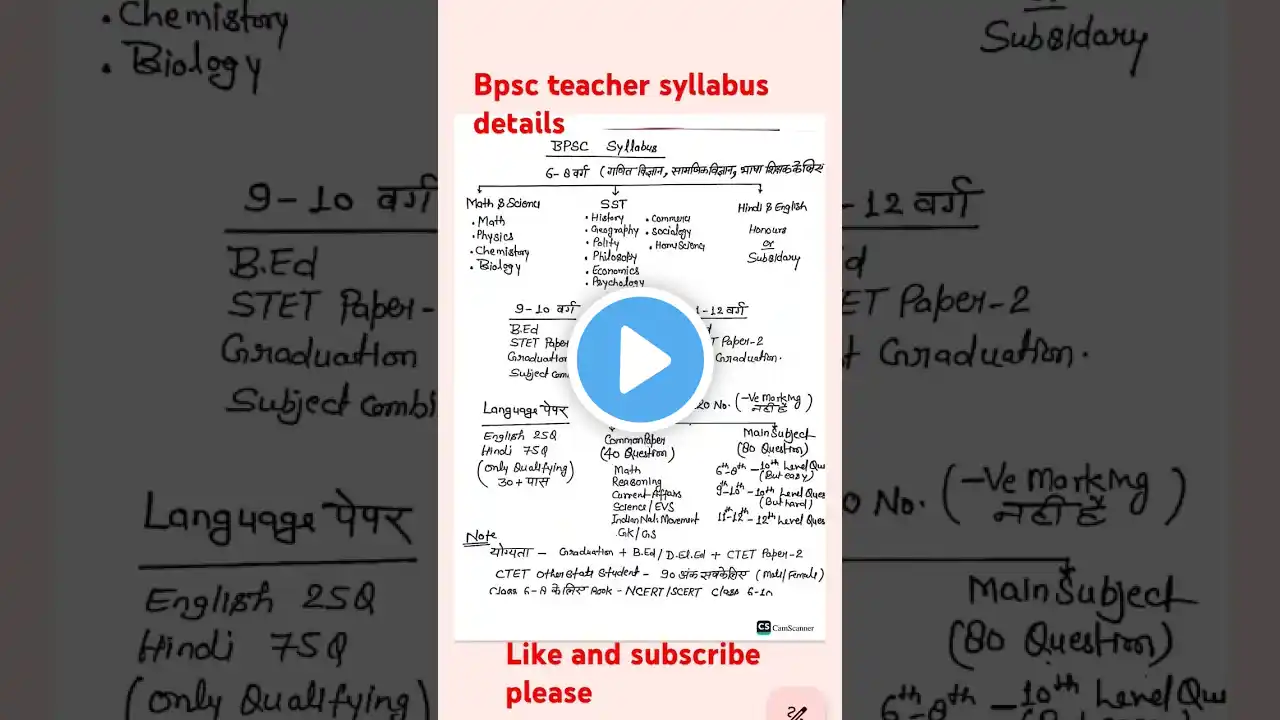 Bpsc teacher syllabus
details
BPSC Syllabus
6-8 वर्ग (गणित विज्ञान, सामाजिक विज्ञान, भाषा शिक्षक के लिए
Math & Science
• Math
• Physics
• Chemistory
• Biology
SST
• History
• Geography
• Polity
• Philosophy
• Economics
• Psychology
• Commerce
• Sociology
• Home Science
Hindi & English
Honours
or
Subsidary
9-10 वर्ग
B.Ed
STET Paper
Graduation
Subject Com
1-12 वर्ग
d
T Paper-2
Graduation.
Language पेपर
English 25Q
Hindi 75Q
(Only Qualifying)
30+ पास
20 No. (-Ve Marking नहीं है)
Common Paper
(40 Question)
Math
Reasoning
Current Affairs
Science/EVS
Indian Nat. Movement
GK/GS
Main Subject
(80 Question)
6th-8th - 10th Level Que
(But easy)
9th-10th - 10th Level Ques
(But hard)
11th-12th - 12th Level Ques
Note
योग्यता - Graduation + B.Ed/D.El.Ed + CTET Paper-2
CTET Other State Student - 90 अंक सबके लिए (Male/Female)
Class 6-8 के लिए Book - NCERT/SCERT Class 6-10
CS CamScanner
Like and subscribe
please
• Chemistory
• Biology
9-10 वर्ग
B.Ed
STET Paper-
Graduation
Subject Combi
Language पेपर
English 25Q
Hindi 75Q
(Only Qualifying)
or
Subsidary
-12 वर्ग
d
ET Paper-2
t Graduation.
0 No. (-Ve Marking नहीं है)
Main Subject
(80 Question)
6th-8th - 10th Level Qu